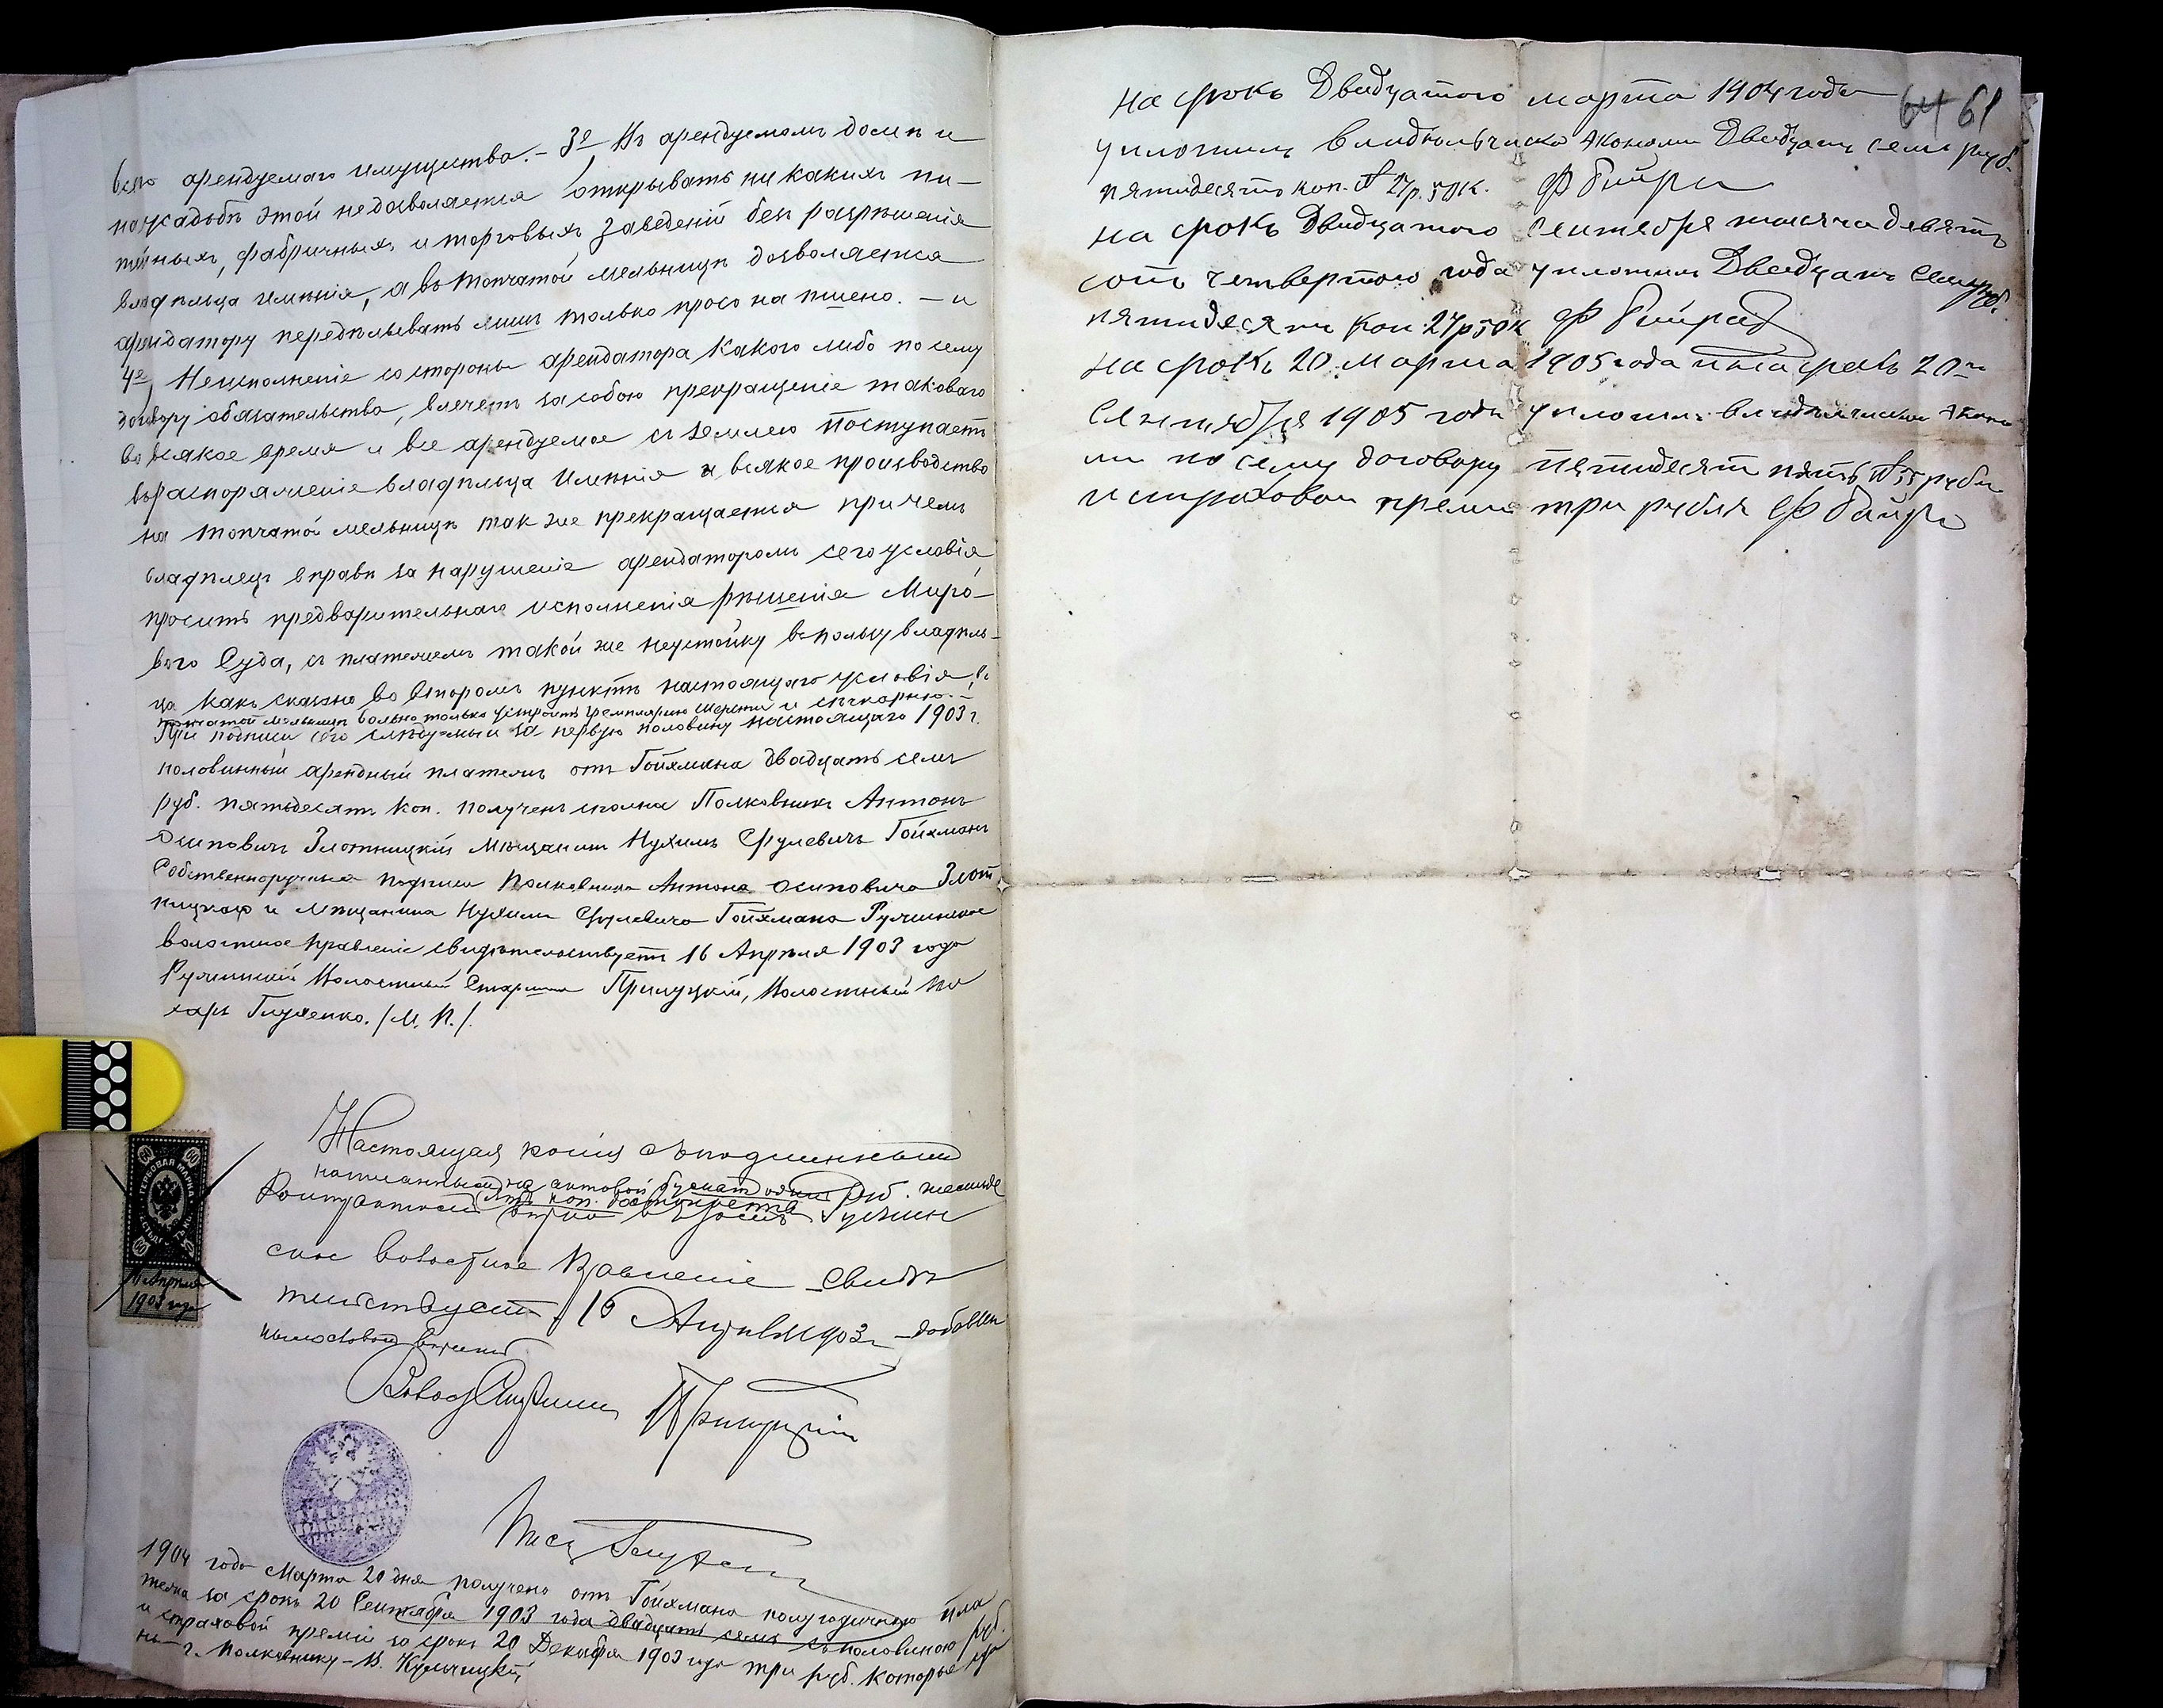 всего арендуемаго имущества. – 3е Въ арендуемомъ домѣ и
на усадьбѣ этой недозволяется открывать ни какихъ пи–
тейныхъ, фабричныхъ и торговыхъ заведеній безъ разрѣшенія
владѣльца имѣнія, а въ топчатой мельницѣ дозволяется
арендатору передѣлывать лишь только просо на пшено. – и
4е, Неисполненіе со стороны арендатора какого либо по сему
договору обязательства, влечетъ за собою прекращеніе таковаго
во всякое время и все арендуемое съ землею поступаетъ
въ распоряженіе владѣльца имѣнія и всякое производство
на топчатой мельницѣ такъ же прекращается причемъ
владѣлецъ вправѣ за нарушеніе арендаторомъ сего условія
просить предварительнаго исполненія рѣшенія Миро–
вого Суда, съ платежемъ такой же неустойку въ пользу владѣль–
ца какъ сказано во второмъ пунктѣ настоящаго условія, Въ
топчатой мельницѣ вольно только устроить и сѣчкарню. –
При подписи сего слѣдуемый за первую половину настоящаго 1903 г.
половинный арендный платежъ отъ Гойхмана двадцать семь
руб. пятьдесятъ коп. полученъ сполна Полковникъ Антонъ
Осиповичъ Злотницкій Мѣщанинъ Нухимъ Срулевичъ Гойхманъ
Собственноручныя подписи Полковника Антона Осиповича Злот
ницкаго и мѣщанина Нухима Срулевича Гойхмана
волостное правленіе свидѣтельствуетъ 16 Апрѣля 1903 года
Волостный Старшина Прилуцкій, Волостный Пи
сарь Глущенко. /М. П./.
Настоящая копія съ подлиннымъ
написаннымъ на актовой бумагѣ одинъ руб.
Контрактомъ
ское волостное Правленіе свидѣ
тельствуетъ 16 Апрѣля 1903 г.
Волос Старшина Прилуцкій
Писарь
ГЕРБОВАЯ МАРКА
60
16 Апрѣля
1903 года
1904 года Марта 20 дня получено отъ Гойхмана полугодичного пла
тежа за срокъ 20 Сентября 1903 года двадцать семь съ половиною руб.
и страховой преміи за срокъ 20 Декабря 1903 года три руб. которые
г. Полковнику – В.
64 61
На срокъ Двадцатого марта 1904 года
уплотилъ Двадцать семь руб.
пятидесятъ коп. № 27 р. 50 к.
на срокъ Двадцатого Сентября тысяча девятъ
сотъ четвертого года уплотилъ Двадцать семь руб.
пятидесятъ коп 27 р 50 к
на срокъ 20 Марта 1905 года и на срокъ 20 го
Сентября 1905 года уплотилъ
по сему договору пятидесятъ пять № 55 рубл
и страховой преміи три рубля